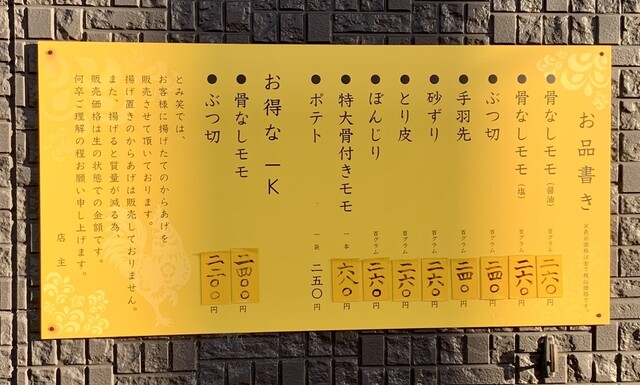 お品書き
●骨なしモモ(醤油) 百グラム 二六〇円
●骨なしモモ(塩) 百グラム 二六〇円
●ぶつ切 百グラム 二四〇円
●手羽先 百グラム 二四〇円
●砂ずり 百グラム 二六〇円
●とり皮 百グラム 二六〇円
●ぼんじり 百グラム 二六〇円
●特大骨付きモモ 一本 六八〇円
●ポテト 一袋 二五〇円
お得な一K
●骨なしモモ 二四〇〇円
●ぶつ切 二二〇〇円
とみ笑では、
お客様に揚げたてのからあげを
販売させて頂いております。
揚げ置きのからあげは販売しておりません。
また、揚げると質量が減る為、
販売価格は生の状態での金額です。
何卒ご理解の程お願い申し上げます。
店主